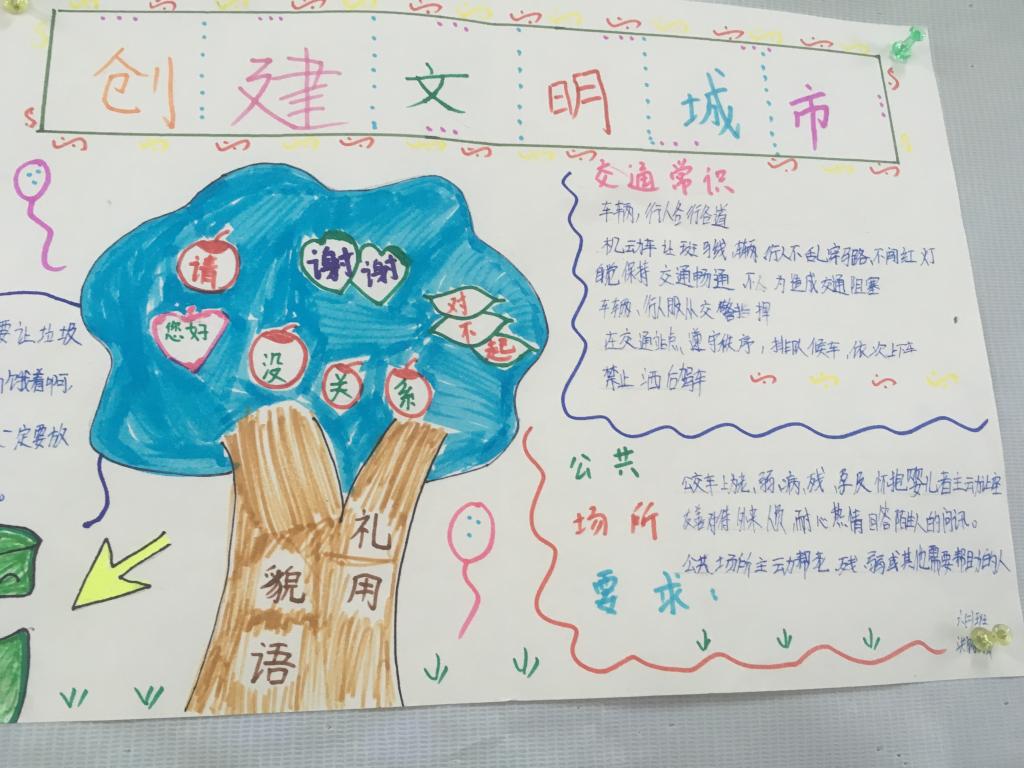 创建文明城市
要让垃圾
一定要放
。
请
谢谢
您好
对
不
起
没
关
系
礼
貌
用
语
交通常识
车辆,行人各行各道
机动车让斑马线,辆行人不乱穿马路、不闯红灯
自觉保持交通畅通 不人为造成交通阻塞
车辆、行人服从交警指挥
在交通站点遵守秩序,排队候车,依次上车
禁止酒后驾车
公共
场所
要求:
公交车上老、弱、病、残、孕及怀抱婴儿者主动让座
友善对待外来人员 耐心热情回答陌生人的问讯。
公共场所主动帮老、残、弱或其他需要帮助的人